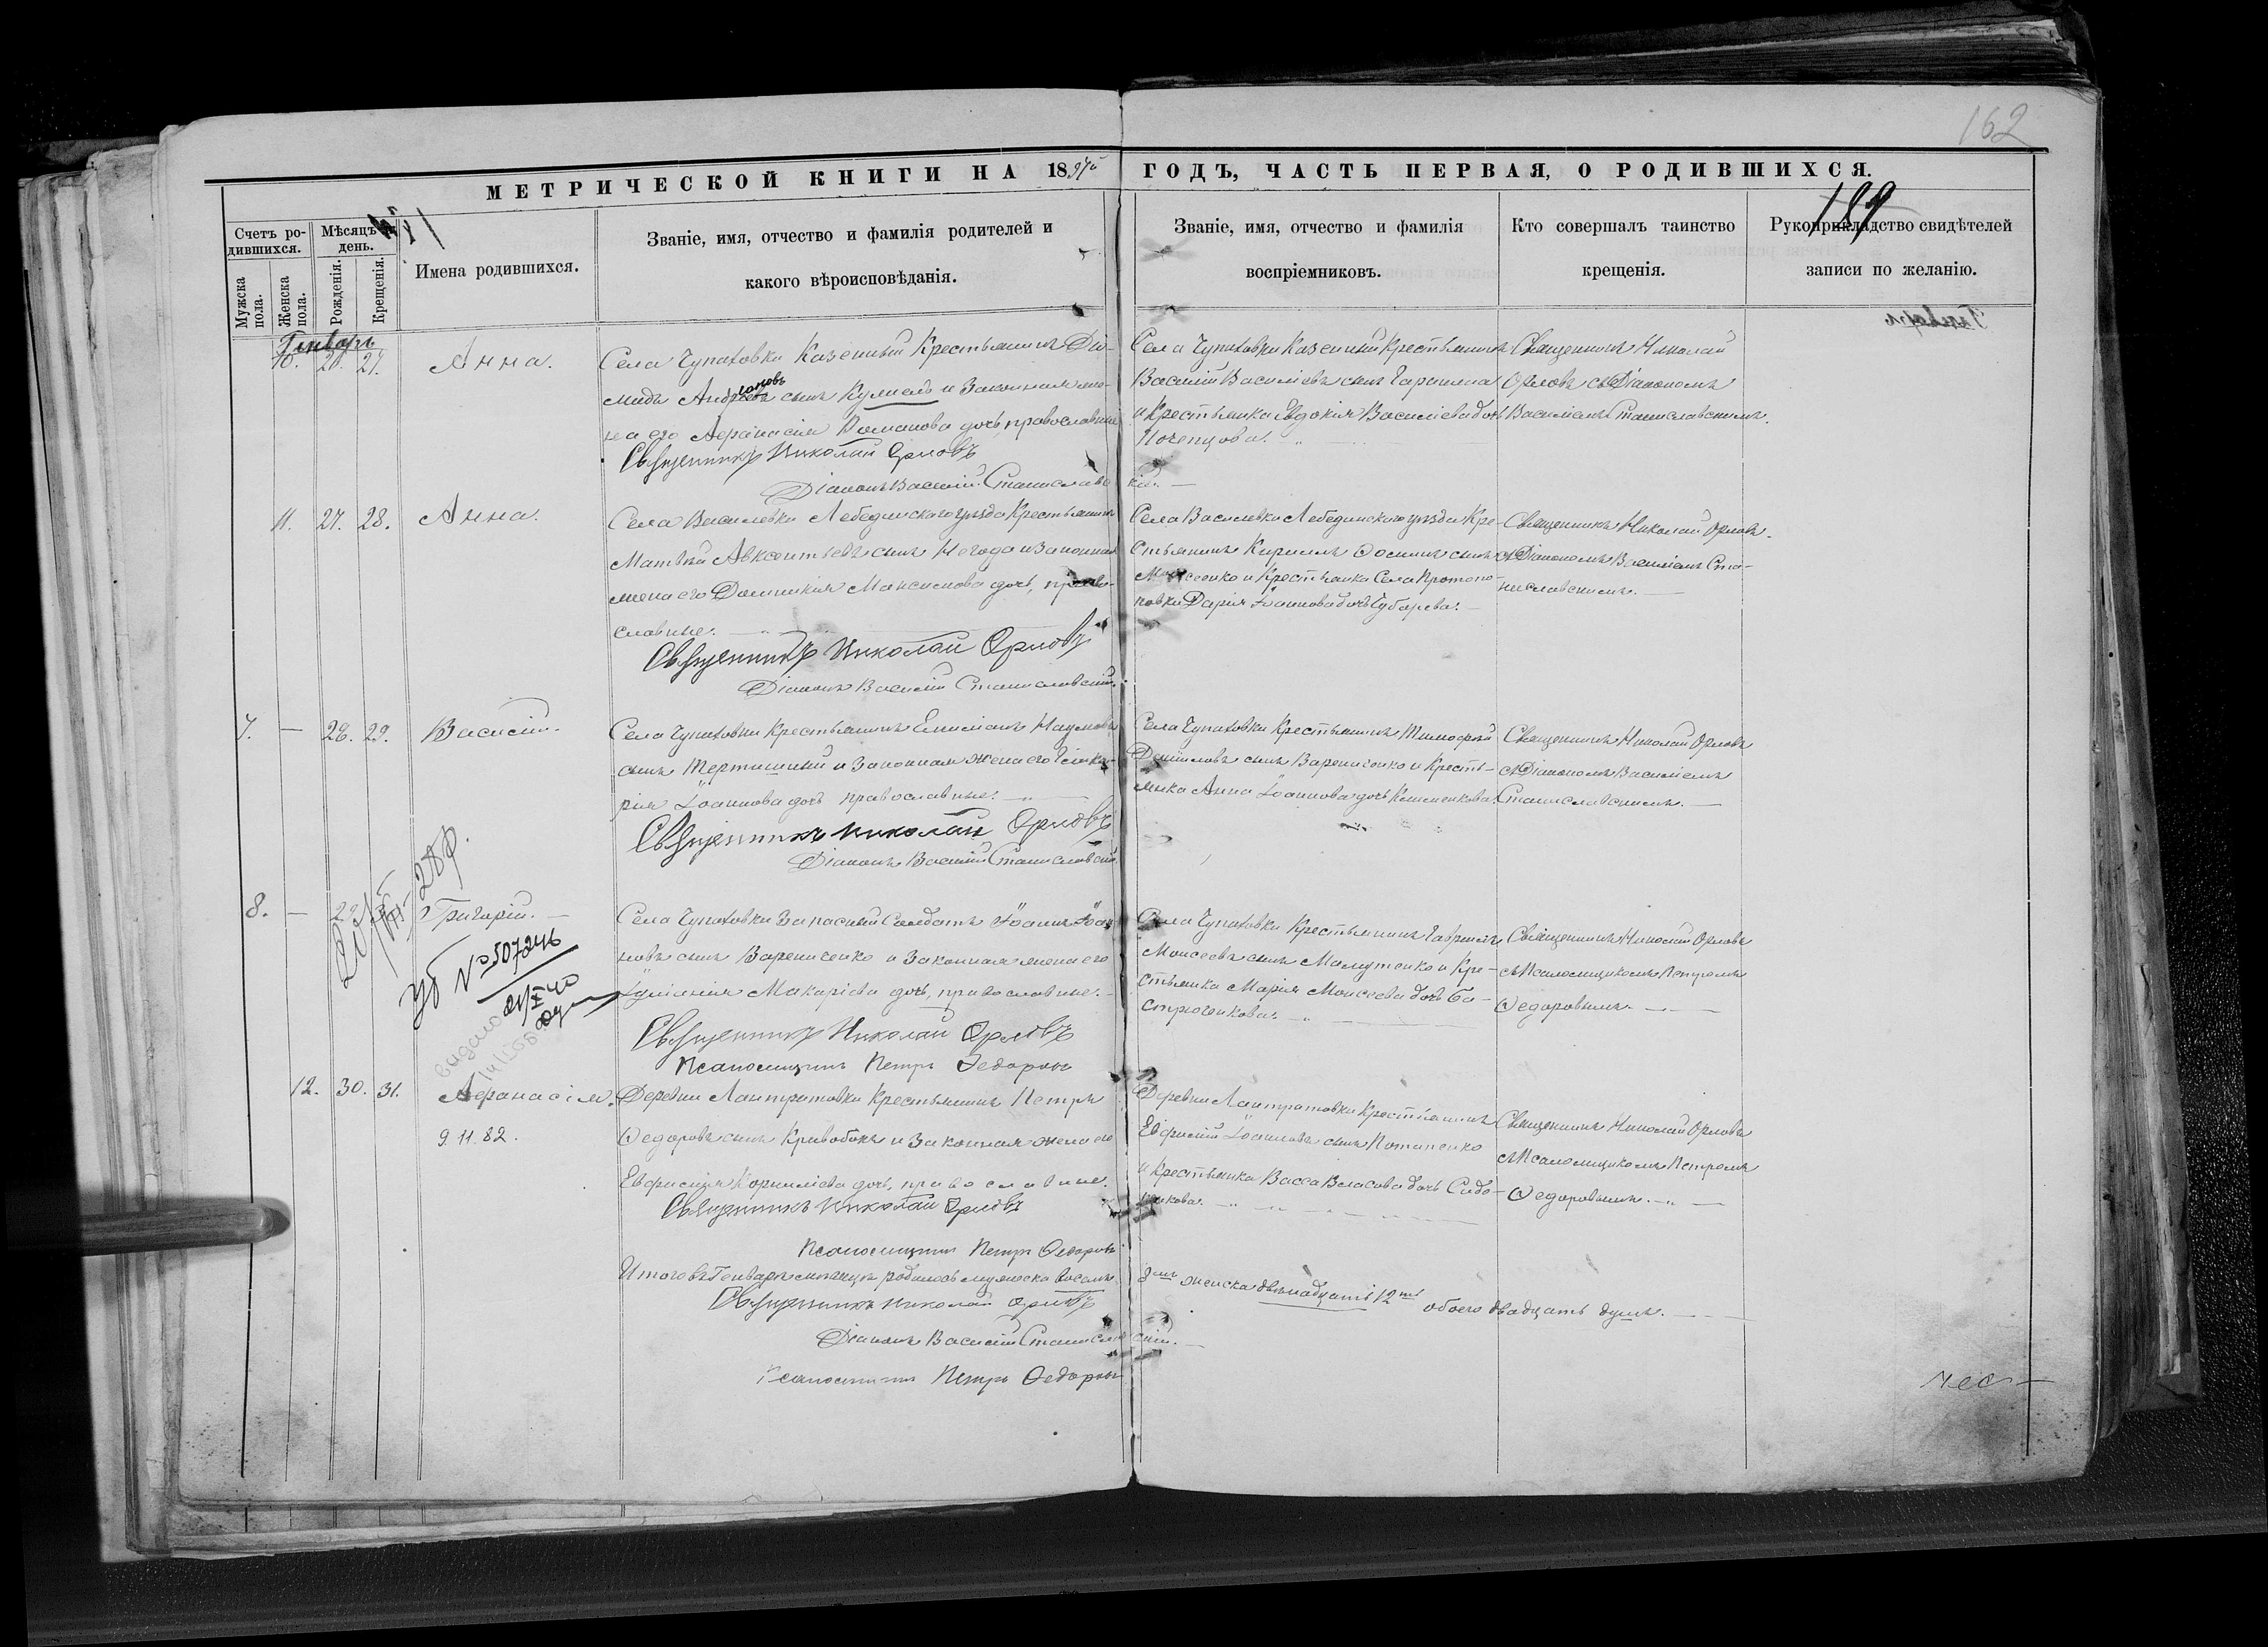 162
МЕТРИЧЕСКОЙ КНИГИ НА 1897й ГОДЪ, ЧАСТЬ ПЕРВАЯ, О РОДИВШИХСЯ.
189
Счетъ ро-
дившихся.
Мужска пола.
Женска пола.
Мѣсяцъ и
день.
Рожденія.
Крещенія.
Имена родившихся.
Званіе, имя, отчество и фамилія родителей и
какого вѣроисповѣданія.
Званіе, имя, отчество и фамилія
воспріемниковъ.
Кто совершалъ таинство
крещенія.
Рукоприкладство свидѣтелей
записи по желанію.
Генварь
10. 27. Анна.
Села Чупаховки Казенный Крестьянинъ Діо-
мидъ сынъ и Законная же-
на его Афанасія Романова дочь, православные
Священникъ Николай Орловъ
Діаконъ Василій Станиславс
Села Чупаховки Казенный Крестьянинъ
Василій Василіевъ сынъ
и Крестьянка Евдокія Василіева дочь
Почепцова.
кій.
Священникъ Николай
Орловъ съ Діакономъ
Василіемъ Станиславскимъ.
11. 27. 28. Анна.
Села Василевки Лебединскаго уѣзда Крестьянинъ
Матѳей Авксентьевъ сынъ Негода и Законная
жена его Домникія Максимова дочь, право-
славные.
Священникъ Николай Орловъ
Діаконъ Василій Станиславскій.
Села Василевки Лебединскаго уѣзда Кре-
стьянинъ Кириллъ Ѳоминъ сынъ
и Крестьянка Села Протопо-
повки Дарія Іоаннова дочь Чубарева.
Священникъ Николай Орловъ
съ Діакономъ Василіемъ Ста-
ниславскимъ.
7. — 28. 29. Василій.
Села Чупаховки Крестьянинъ Емиліанъ Наумовъ
сынъ Тертишный и Законная жена его Глике-
рія Іоаннова дочь православные.
Священникъ Николай Орловъ
Діаконъ Василій Станиславскій
Села Чупаховки Крестьянинъ Тимофей
Даніиловъ сынъ Варениченко и Кресть-
янка Анна Іоаннова дочь Клименкова.
Священникъ Николай Орловъ
съ Діакономъ Василіемъ
Станиславскимъ.
8. — 29. Григорій.
УБ № 507246
Села Чупаховки Запасный Солдатъ Іоаннъ Іоан
новъ сынъ Варениченко и Законная жена его
Іуліанія Макаріева дочь, православные.
Священникъ Николай Орловъ
Псаломщикъ Петръ Федоровъ
Села Чупаховки Крестьянинъ Гавріилъ
Моисеевъ сынъ и Кре-
стьянка Марія Моисеева дочь Ба-
стрюченкова.
Священникъ Николай Орловъ
съ Псаломщикомъ Петромъ
Ѳедоровымъ.
12. 30. 31. Афанасія.
9.11.82.
Деревни Лантратовки Крестьянинъ Петръ
Ѳедоровъ сынъ Кривобокъ и Законная жена его
Евфросинія Корниліева дочь, православные.
Священникъ Николай Орловъ
Псаломщикъ Петръ Ѳедоровъ
Деревни Лантратовки Крестьянинъ
Евфимій Іоанновъ сынъ Потапенко
и Крестьянка Васса Власова дочь Сидо-
ренкова.
Священникъ Николай Орловъ
съ Псаломщикомъ Петромъ
Ѳедоровымъ.
Итого въ Генварѣ мѣсяцѣ родилось мужеска восемь 8мь женска двѣнадцать 12ть обоего двадцать душъ.
Священникъ Николай Орловъ
Діаконъ Василій Станиславскій.
Псаломщикъ Петръ Ѳедоровъ